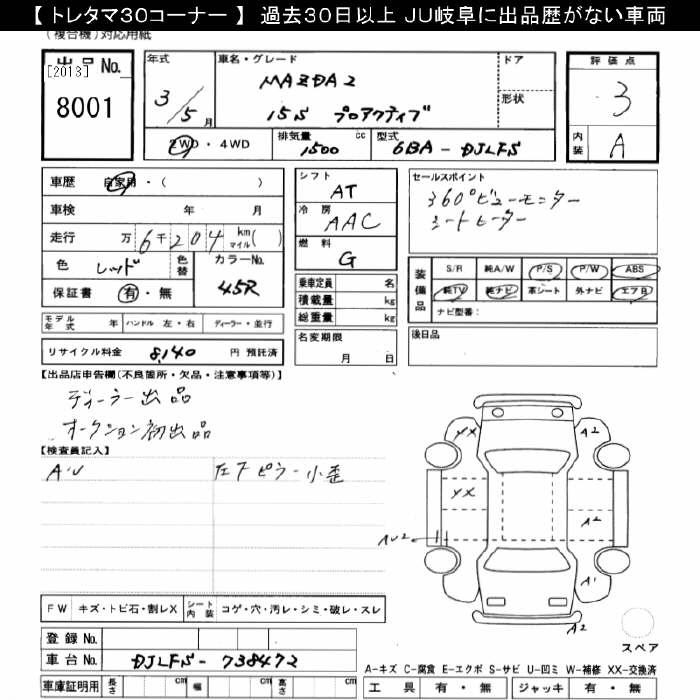 【 トレタマ30コーナー 】 過去30日以上 JU岐阜に出品歴がない車両
(複合機)対応用紙
出品No.
[2013]
8001
年式
3/5月
車名・グレード
MAZDA2
15S プロアクティブ
ドア
形状
評価点
3
内装
A
2WD・4WD
排気量
1500
cc
型式
6BA-DJLFS
車歴
自家用・( )
車検
年 月
走行
万6千204
km
マイル( )
色
レッド
色替
カラーNo.
45R
保証書
有・無
シフト
AT
冷房
AAC
燃料
G
乗車定員 名
積載量 kg
総重量 kg
セールスポイント
360°ビューモニター
シートヒーター
装備品
S/R 純A/W P/S P/W ABS
純TV 純ナビ 革シート 外ナビ エアB
ナビ型番:
モデル年式 年
ハンドル 左・右
ディーラー・並行
名変期限
月 日
後日品
リサイクル料金 8,140 円 預託済
【出品店申告欄(不良箇所・欠品・注意事項等)】
ディーラー出品
オークション初出品
【検査員記入】
AU
左下ピラー小歪
XX
A2
XX
A2
AU2
A1
A2
スペア
FW キズ・トビ石・割レX
シート内装 コゲ・穴・汚レ・シミ・破レ・スレ
登録No.
車台No. DJLFS-738472
車庫証明用 長さ cm 幅 cm 高さ cm
A-キズ C-腐食 E-エクボ S-サビ U-凹ミ W-補修 XX-交換済
工具 有・無 ジャッキ 有・無